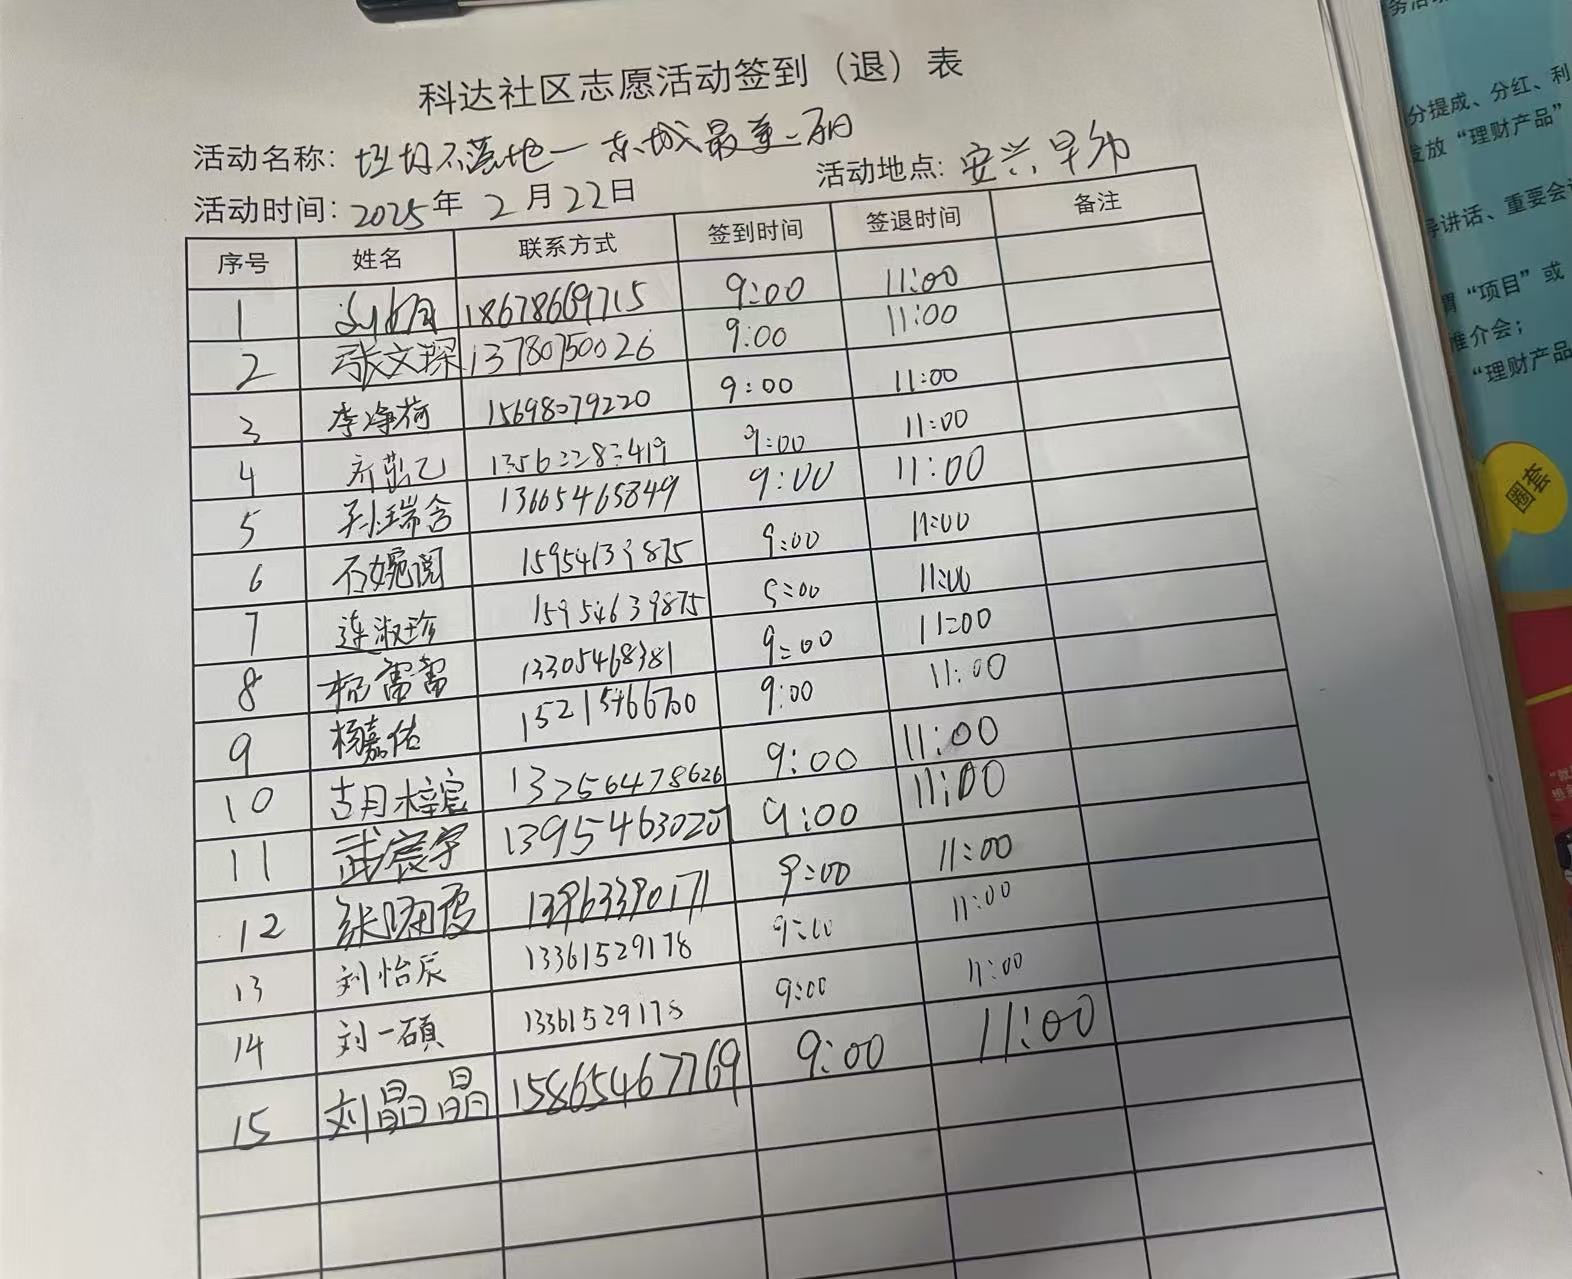 科达社区志愿活动签到（退）表
活动名称：垃圾不落地一东城最美丽
活动时间：2025年 2月22日 活动地点：安兴早市
序号 姓名 联系方式 签到时间 签退时间 备注
1 18678669715 9:00 11:00
2 张文琛 13780750026 9:00 11:00
3 李净荷 15698079220 9:00 11:00
4 9:00 11:00
5 孙瑞含 13605465849 9:00 11:00
6 石婉阅 9:00 11:00
7 连淑珍 15954639875 11:00
8 杨雷雷 13305468381 9:00 11:00
9 杨嘉佑 15215466700 9:00 11:00
10 古月梓宣 13256478626 9:00 11:00
11 武宸宇 9:00 11:00
12 13963390171 9:00 11:00
13 刘怡辰 13361529178 9:00 11:00
14 刘一硕 13361529178 9:00 11:00
15 刘晶晶 15865467769 9:00 11:00
务活
分提成、分红、利
发放“理财产品”
导讲话、重要会
“项目”或
推介会；
“理财产品
圈套